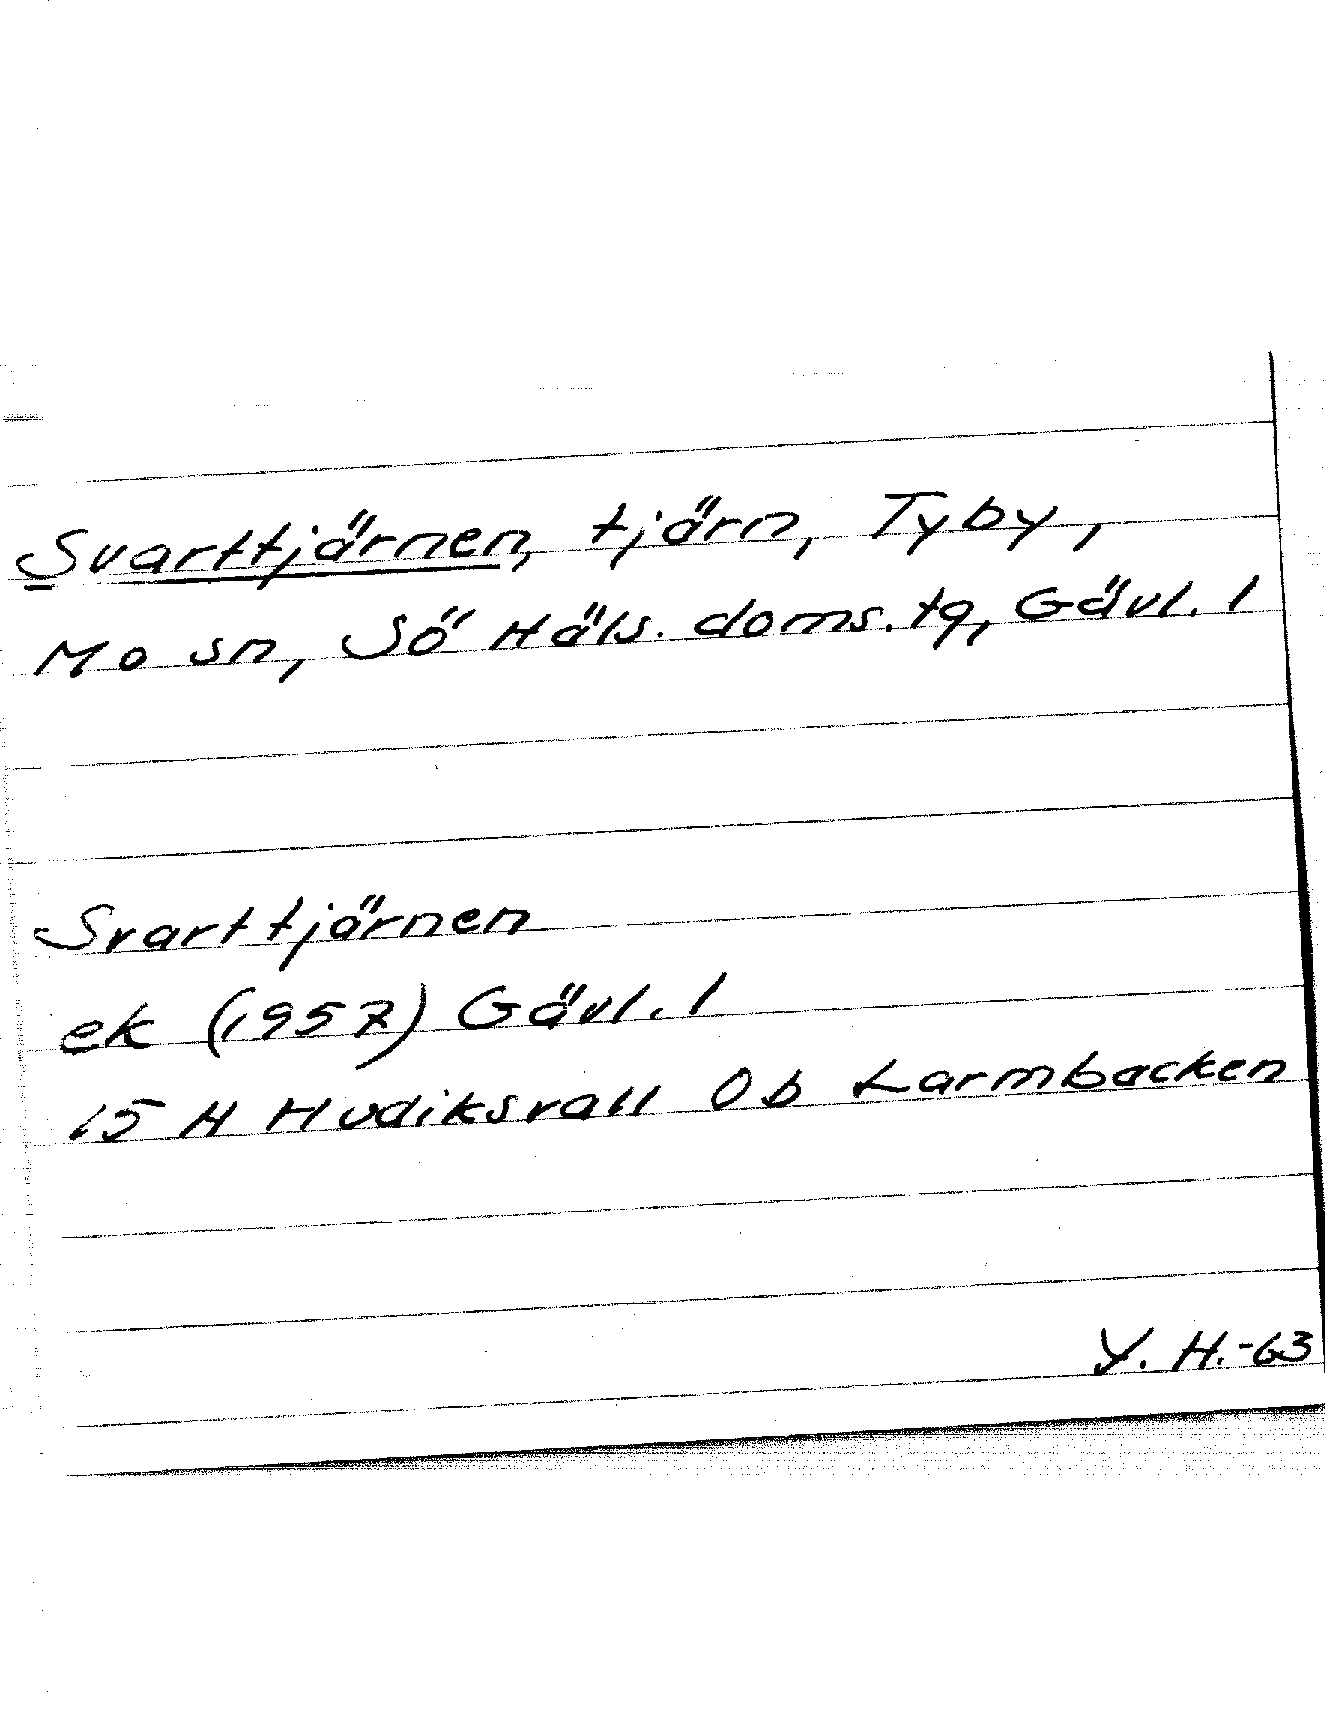 Svarttjärnen, tjärn, Tyby,
Mo sn, Sö Häls. doms. tg, Gävl. l
Svarttjärnen
ek (1957) Gävl. l
15 H Hudiksvall Ob Larmbacken
Y. H.-63